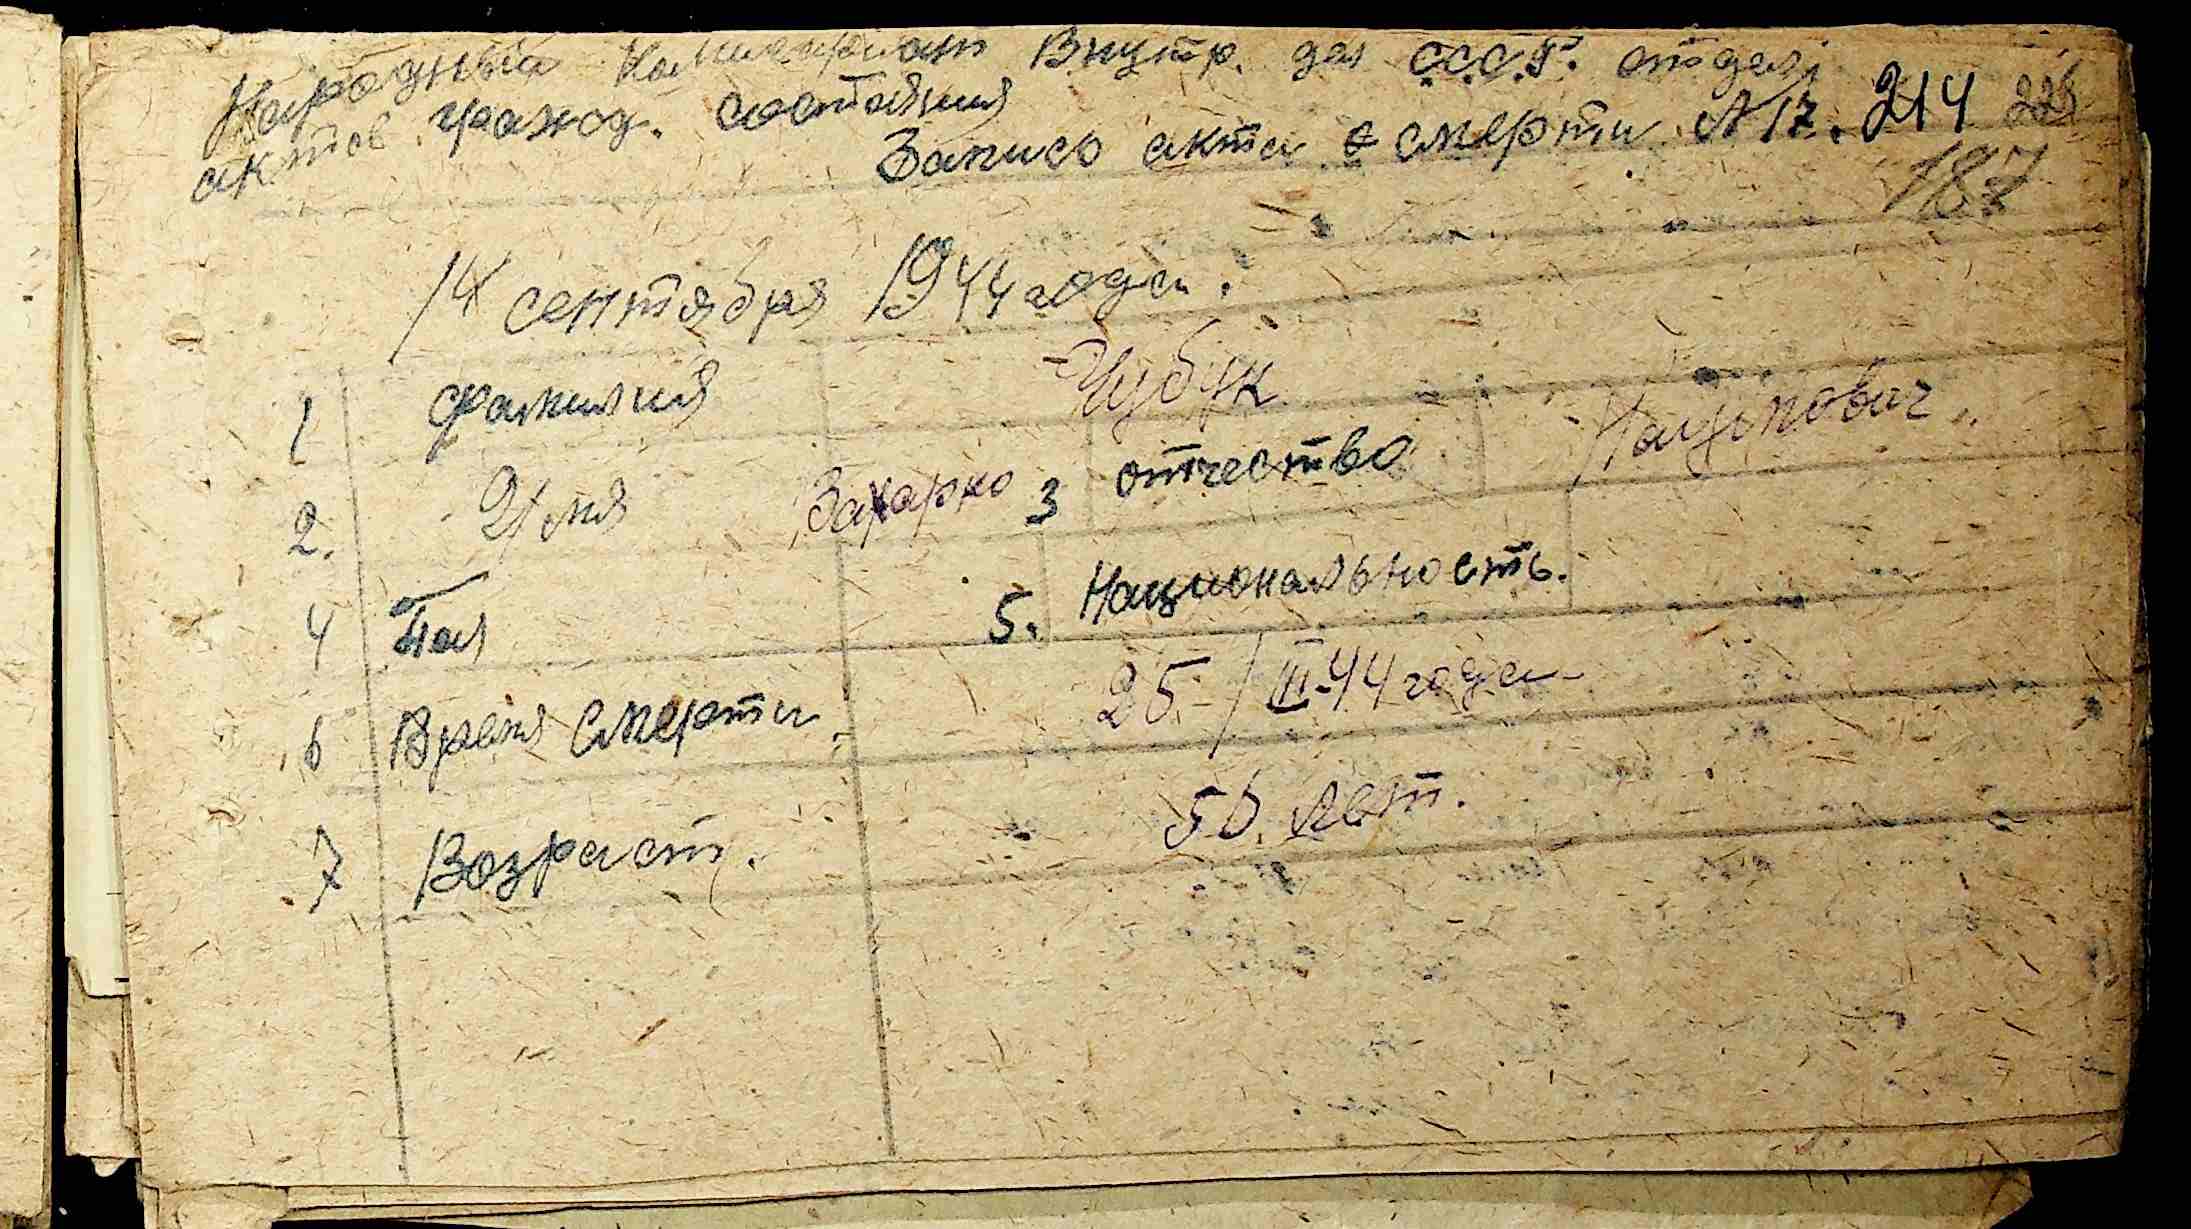 Народный Комиссариат Внутр. дел С.С.С.Р. отдел
актов гражд. состояния
Запись акта о смерти № 17. 214
187
14 сентября 1944 года.
1 Фамилия Чубук
2. Имя Захарко 3 отчество
4 Пол 5. Национальность.
6 Время смерти 25 / III-44 года
7 Возраст. 50 лет.